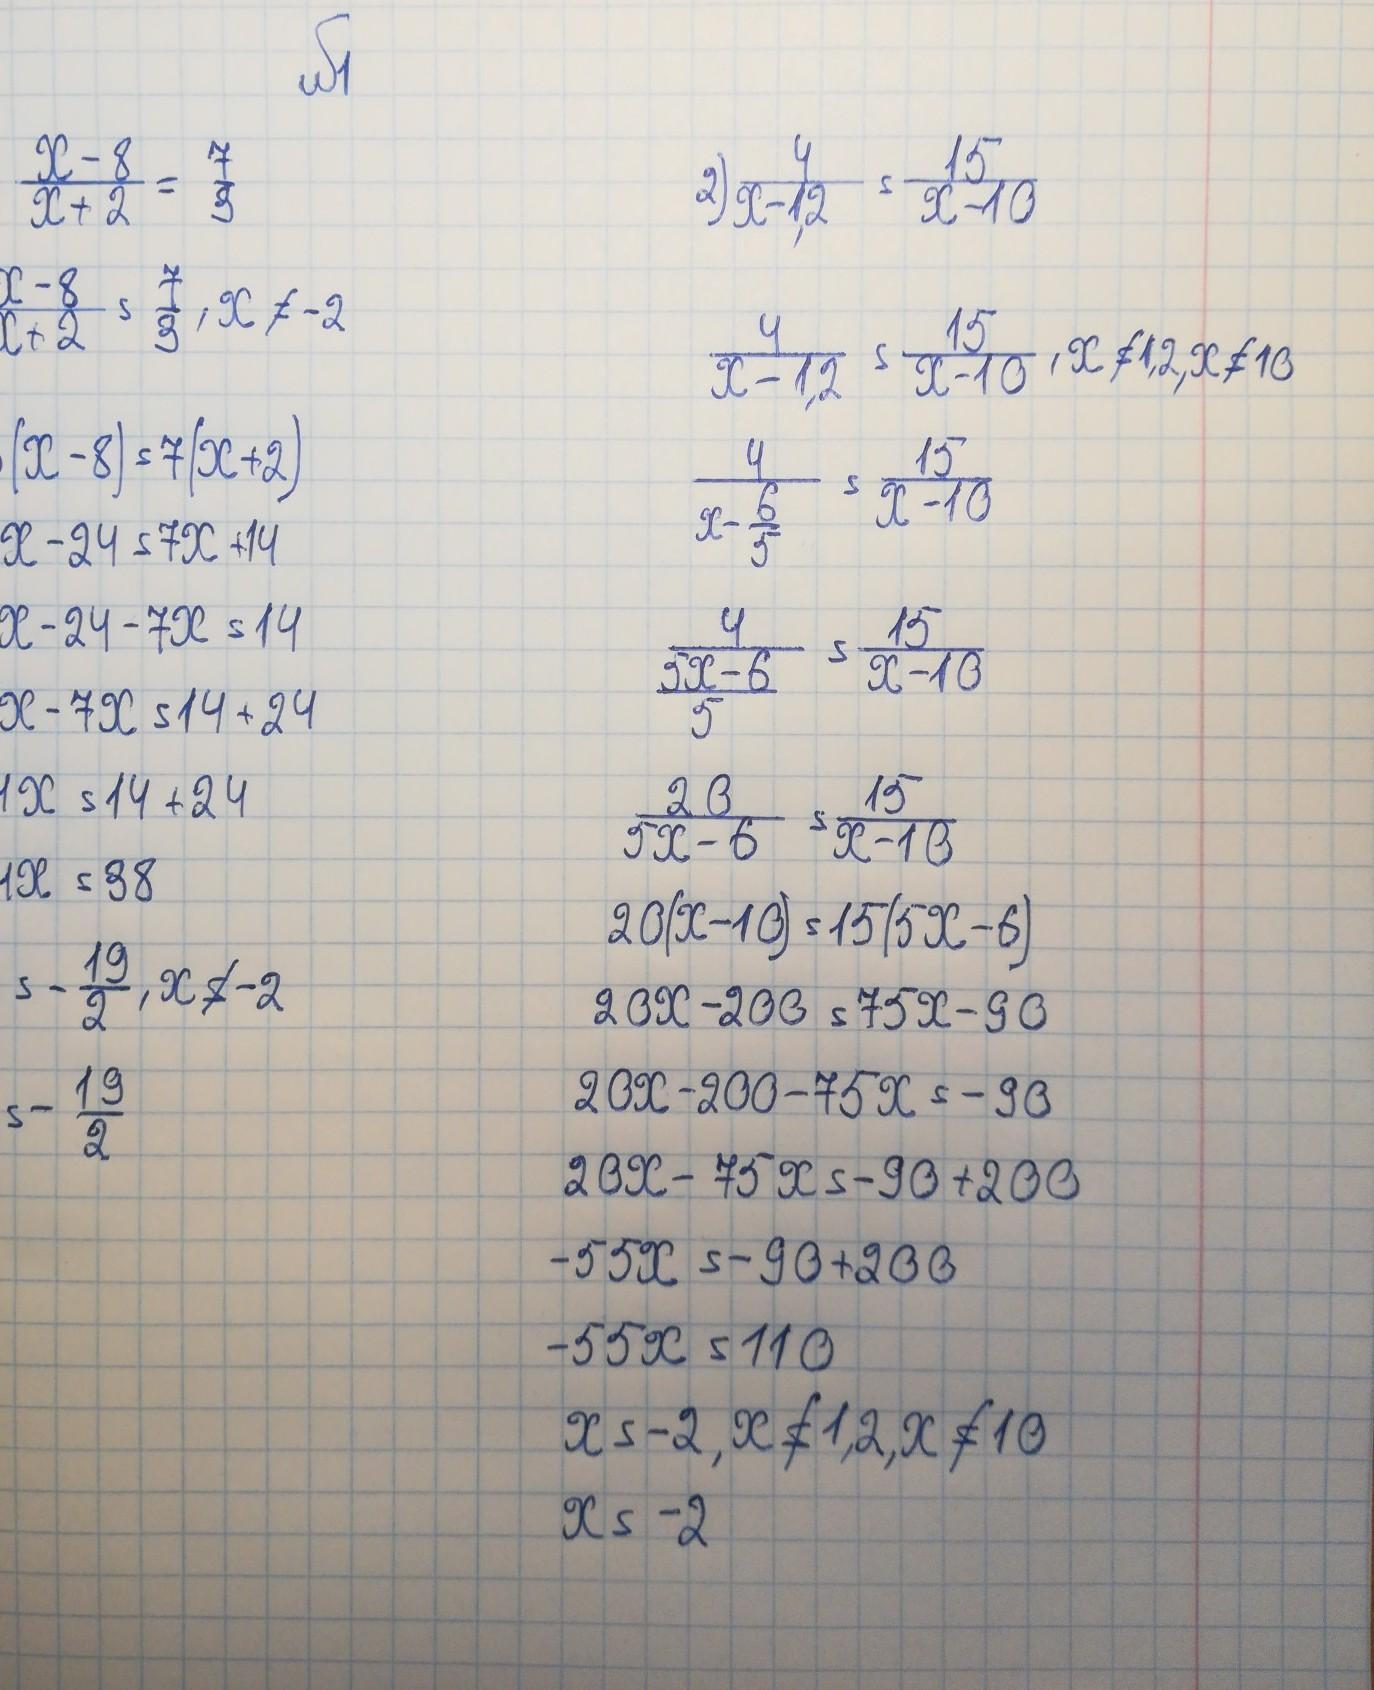 №1
x-8/x+2 = 7/3
x-8/x+2 = 7/3, x≠-2
(x-8)=7(x+2)
x-24=7x+14
x-24-7x=14
x-7x=14+24
x=14+24
x=38
=-19/2, x≠-2
=-19/2
2) 4/x-1,2 = 15/x-10
4/x-1,2 = 15/x-10, x≠1,2, x≠10
4/x-6/5 = 15/x-10
4/5x-6/5 = 15/x-10
20/5x-6 = 15/x-10
20(x-10)=15(5x-6)
20x-200=75x-90
20x-200-75x=-90
20x-75x=-90+200
-55x=-90+200
-55x=110
x=-2, x≠1,2, x≠10
x=-2